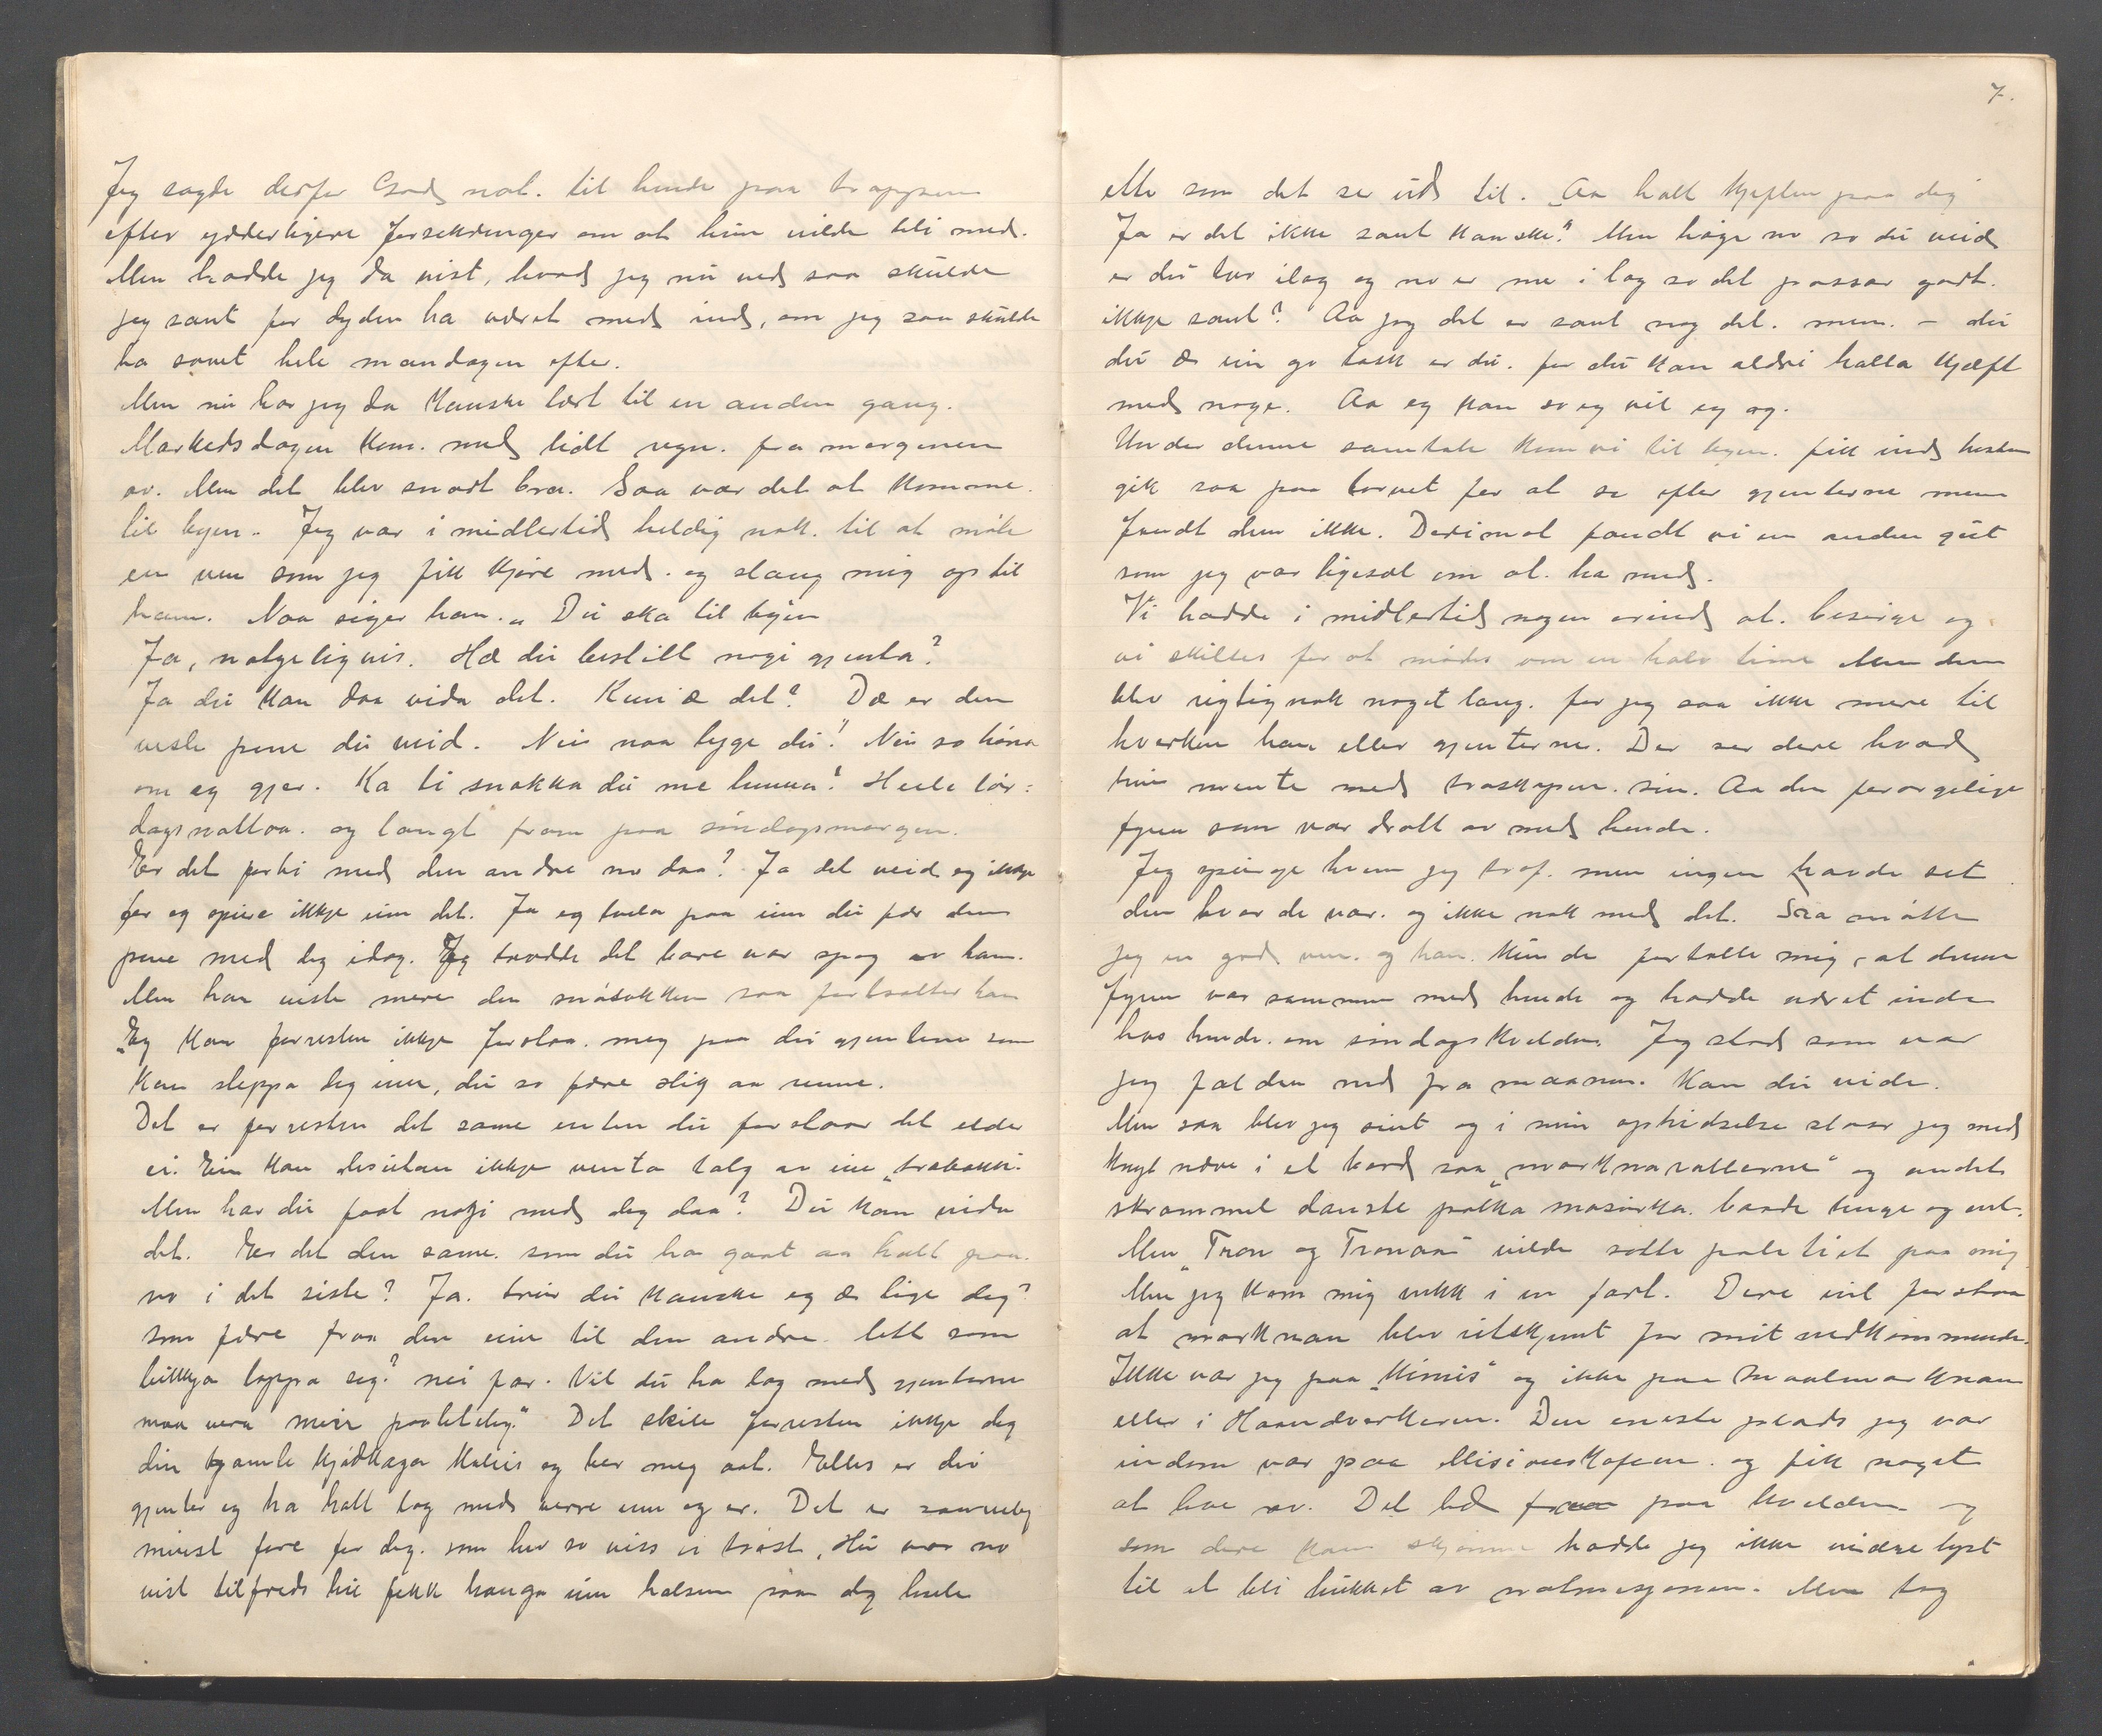 Jeg sagde derfor God nat. til hende paa trappen
efter ydderligere forsekringer om at hun vilde bli med.
Men hadde jeg da vist, hvad jeg nu ved saa skulde
jeg sant for dyden ha været med ind, om jeg saa skulde
ha sovet hele mandagen efter.
Men nu har jeg da kanske lært til en anden gang.
Markedsdagen kom. med lidt regn. fra morgenen
av. Men det blev snart bra. Saa var det at komme.
til byen. Jeg var imidlertid heldig nok. til at møte
en ven som jeg fik kjøre med. og slang mig op til
ham. Naa siger han. „Du ska til byen
Ja, natyrligvis. Hæ du bestilt nogi gjenta?
Ja du kan daa vida det. Kem æ det? Dæ er den
vesle pene du veid. Nei naa lyge du! Nei so
om eg gjer. Ka ti snakka du me henna? Heile lør:
dagsnattaa. og langt fram paa søndagsmorgen.
Er det forbi med den andre no daa? Ja det veid eg ikkje
for eg spure ikkje um det. Ja eg tvila paa um du fær den
pene med deg idag. Jeg trodde det bare var spøg av ham.
Men han viste mere den so fortsatter han
„Eg kan forresten ikkje forstaa. meg paa dei gjentene som
kan sleppa deg inn, du so fære slig aa renne.
Det er forresten det same enten du forstaar det elder
ei. Ein kan desutan ikkje venta talg av ein „
Men har du faat nogi med deg daa? Du kan vida
det. Er det den same. som du ha gaat aa halt paa.
no i det siste? Ja. trur du kanske eg æ lige deg?
som fære fraa den eine til den andre. lett som
bikkja loppa seg? nei far. Vil du ha lag med gjentene
maa vera meir paaliteleg." Det skile forresten ikkje deg
din gamle og ber meg aat. Elles er dei
gjenter eg ha halt lag med verre enn eg er. Det er
minst fare for deg. som hev so viss ei trøst. Hu var no
vist tilfreds hu fekk hanga um halsen paa deg heile
7.
elle som det ser ud til. „Aa halt kjeften paa deg"
Ja er det ikke sant kanske? Men no so du veid
er du ilag og no er me i lag so det passar godt.
ikkje sant? Aa jeg det er sant nog det. men. – du
du æ ein go task er du. for du kan aldri halla kjæft
med noge. Aa eg kan so eg vil eg og.
Under denne samtale kom vi til byen. fik ind hesten
gik saa paa torvet for at se efter gjenterne men
fandt dem ikke. Derimot fandt vi en anden gut
som jeg var ligesæl om at. ha med.
Vi hadde imidlertid nogen erind at. besørge og
vi skiltes for at mødes om en halv time Men den
blev rigtignok noget lang. for jeg saa ikke mere til
hverken ham eller gjenterne. Der ser dere hvad
hun mente med troskapen. sin. Aa den forargelige
fyren som var dratt av med hende.
Jeg spurge hvem jeg traf. men ingen havde set
dem hvor de var. og ikke nok med det. Saa møtte
jeg en god ven. og han. kunde fortælle mig, at denne
fyren var sammen med hende og hadde været inde
hos hende. om søndagskvelden. Jeg stod som var
jeg falden ned fra maanen. Kan du vide.
Men saa blev jeg sint og i min ophidselse slaar jeg med
knyt næve i et bord saa „marknavallerne" og andet
skrammel danste polka masurka. baade tunge og ent.
Men „Tron og Tronaas" vilde sette politiet paa mig
Men jeg kom mig vekk i en fart. Dere vil forstaa
at marknan blev utskjemt for mit vedkommende.
Ikke var jeg paa „Kinnis" og ikke paa Smaalmarknan
eller i Haandverkeren. Den eneste plads jeg var
indom var paa Misionskafeen. og fik noget
at leve av. Det led paa kvelden og
som dere kan skjønne hadde jeg ikke videre lyst
til at bli hukket av natmesjonen. Men tog